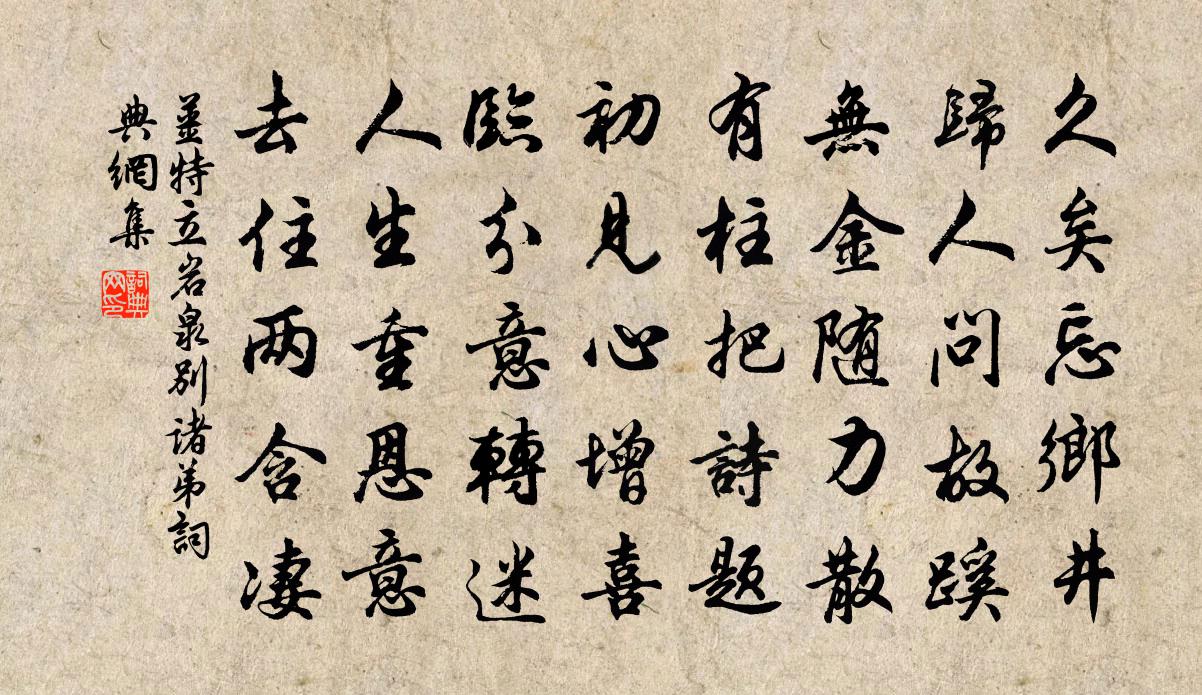 久矣忘鄉井
歸人問故蹊
無金随力散
有柱把詩题
初見心增喜
臨分意轉迷
人生重恩意
去住两含凄
姜特立岩泉别诸弟詞
典網集
詞典
网印